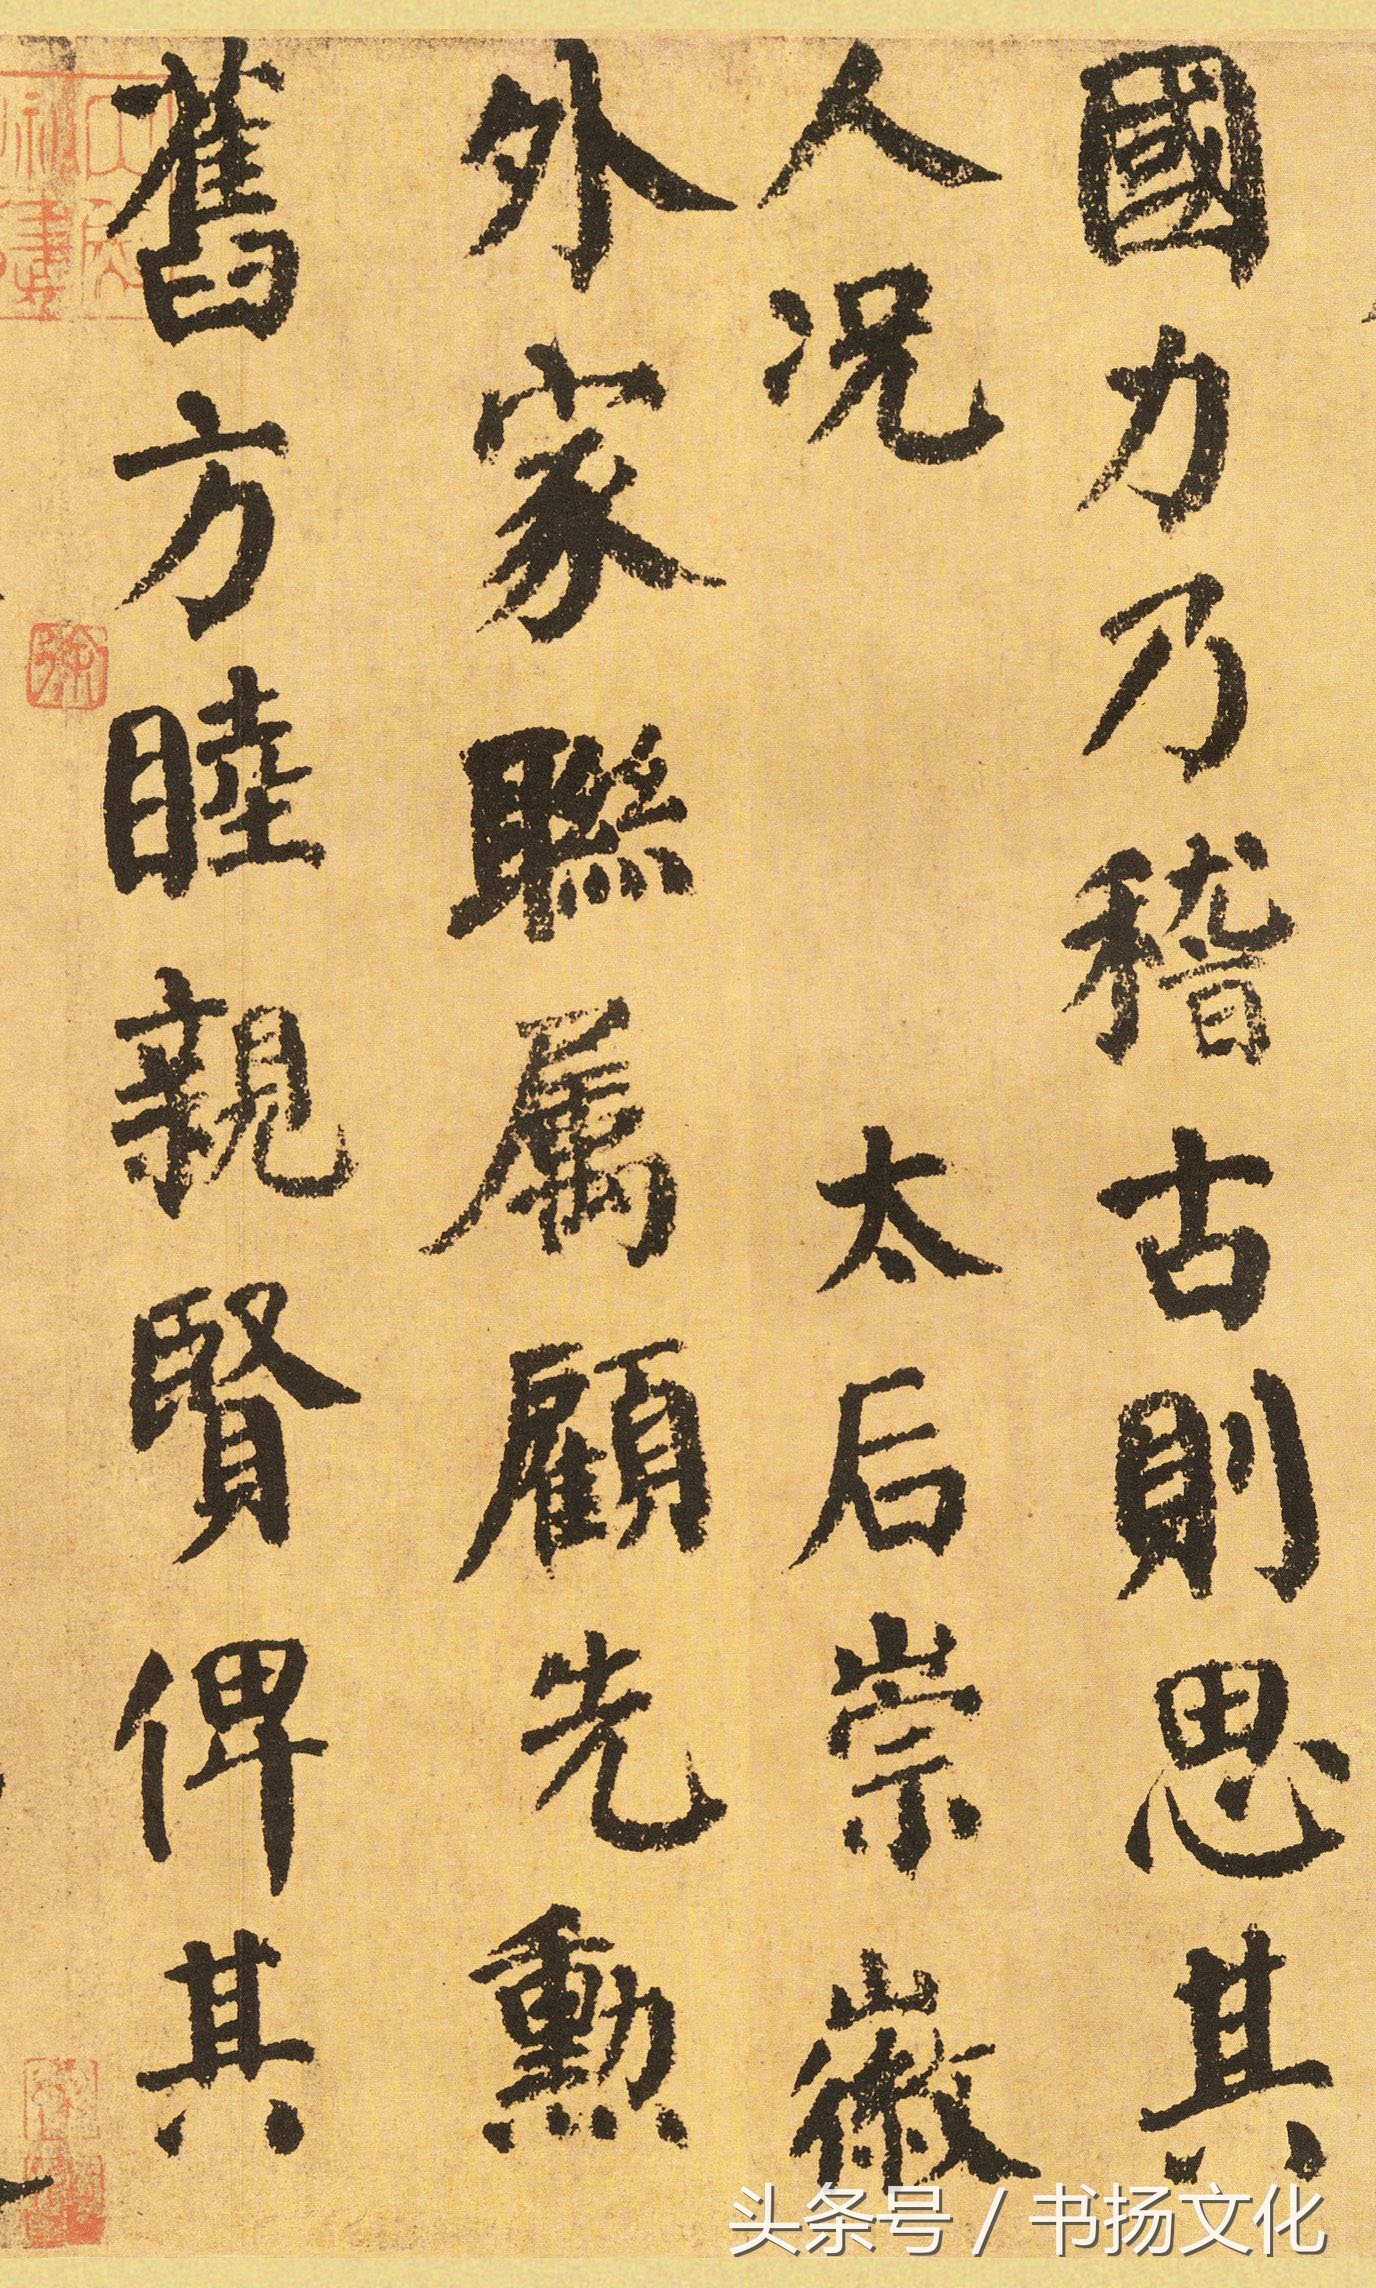 國力乃稽古則思其
人况 太后崇徽
外家聯属顧先勲
舊方睦親賢俾其
头条号 / 书扬文化